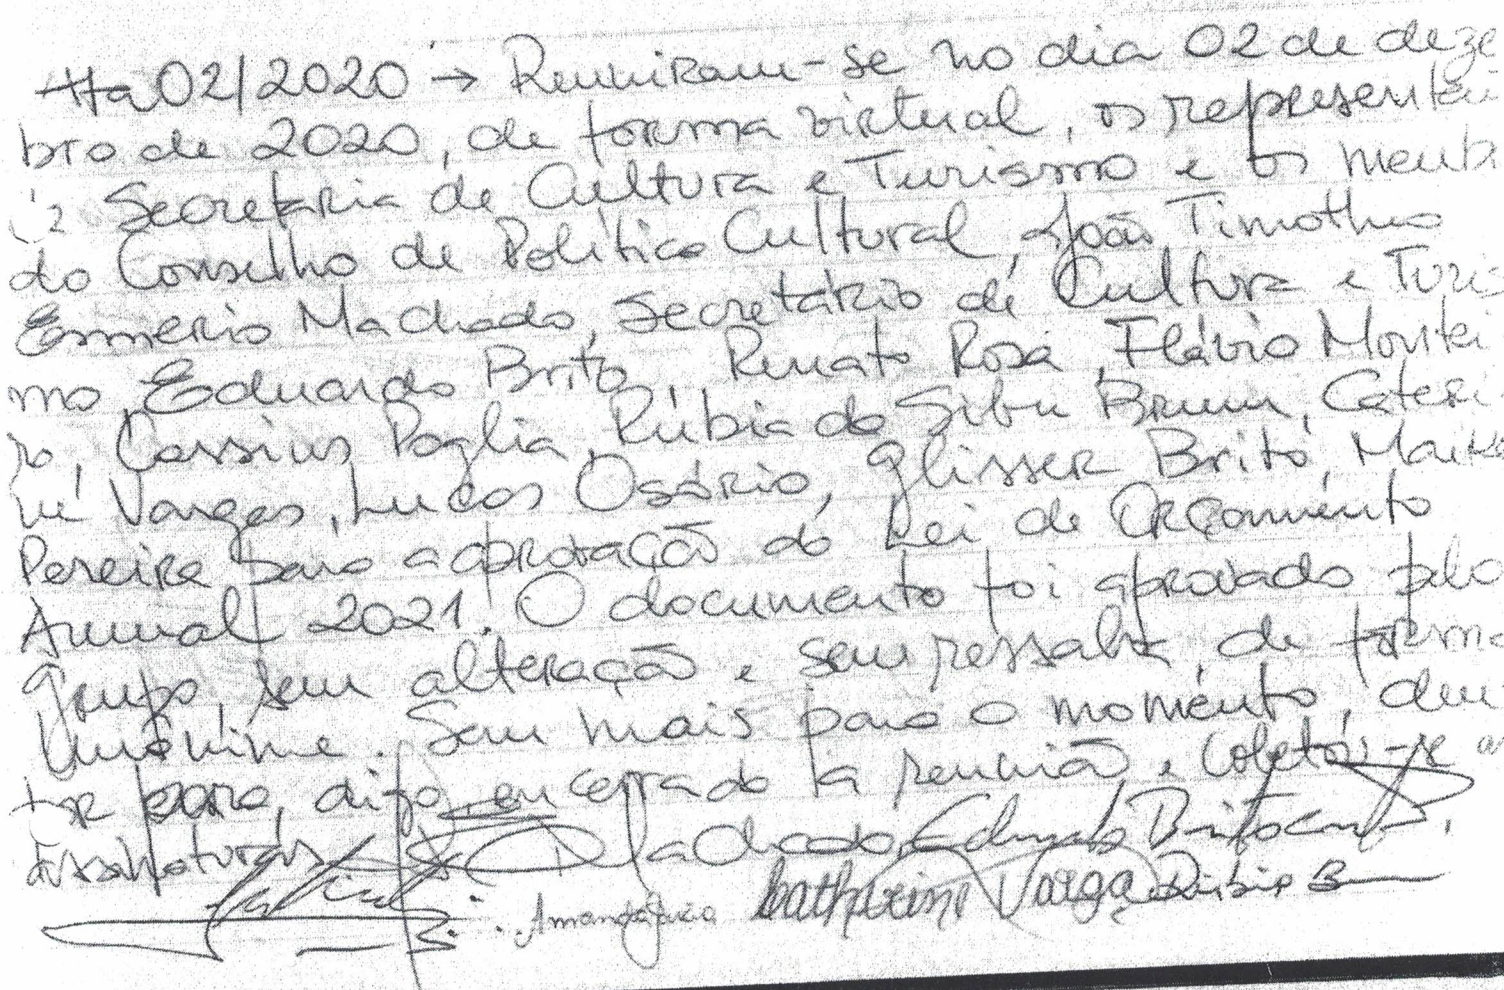 Ata 02/2020 → Reuniram-se no dia 02 de deze
bro de 2020, de forma virtual, os representa
Secretaria de Cultura e Turismo e os memb
do Conselho de Política Cultural, João Timotheo
Esmerio Machado, Secretário de Cultura e Turis
mo Eduardo Brito, Renato Rosa, Flávio Montei
ro, Cassius Poglia, Rúbia da Silva Brum, Cateri
ne Vargas, Lucas Osório, Glisser Brito, Maike
Pereira para a aprovação da Lei de Orçamento
Anual 2021. O documento foi aprovado pelo
grupo, sem alteração e sem ressalva, de forma
unânime. Sem mais para o momento, deu-
digo, encerrada a reunião e coletou-se as
assinaturas
Machado, Eduardo Brito
Amanda Katherine Varga Rúbia B